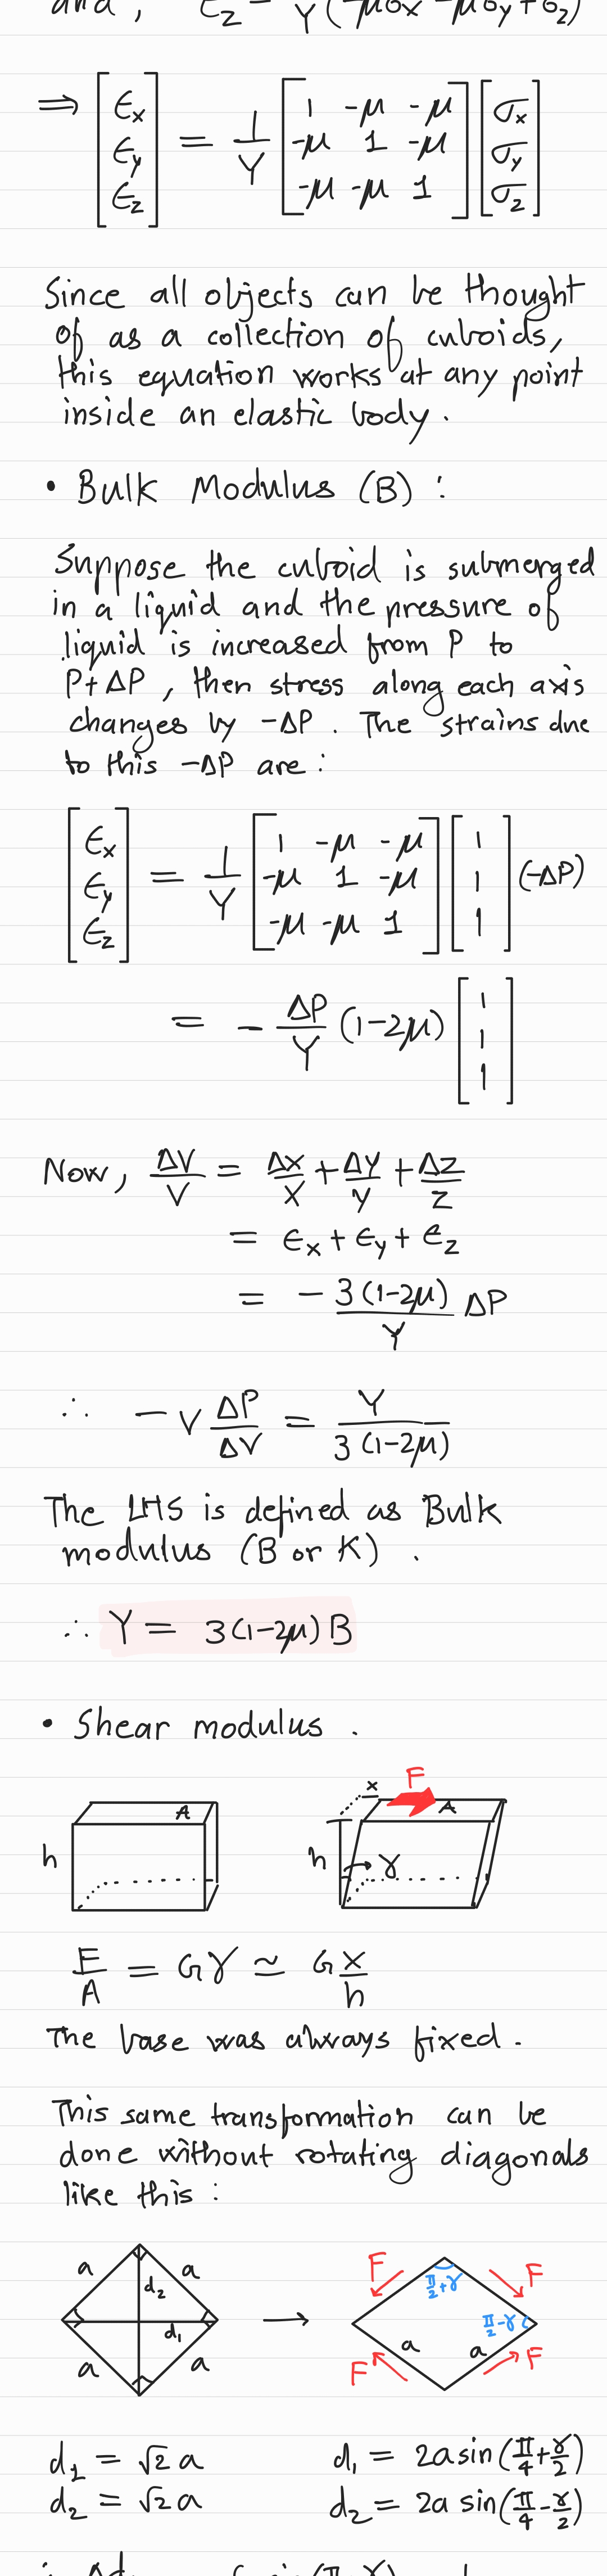 and, ϵz = 1/Y (-μσx -μσy + σz)
⇒ [ϵx ϵy ϵz] = 1/Y [1 -μ -μ; -μ 1 -μ; -μ -μ 1] [σx σy σz]
Since all objects can be thought
of as a collection of cuboids,
this equation works at any point
inside an elastic body.
• Bulk Modulus (B) :
Suppose the cuboid is submerged
in a liquid and the pressure of
liquid is increased from P to
P+ΔP, then stress along each axis
changes by -ΔP. The strains due
to this -ΔP are :
[ϵx ϵy ϵz] = 1/Y [1 -μ -μ; -μ 1 -μ; -μ -μ 1] [1 1 1] (-ΔP)
= - ΔP/Y (1-2μ) [1 1 1]
Now, ΔV/V = Δx/x + Δy/y + Δz/z
= ϵx + ϵy + ϵz
= - 3(1-2μ)/Y ΔP
∴ -V ΔP/ΔV = Y/3(1-2μ)
The LHS is defined as Bulk
modulus (B or K) .
∴ Y = 3(1-2μ) B
• Shear modulus .
A
h
x
F
A
h
γ
F/A = Gγ ≃ G x/h
The base was always fixed.
This same transformation can be
done without rotating diagonals
like this :
a a
d2
d1
a a
F F
π/2+γ
π/2-γ
a a
F F
d1 = √2 a d1 = 2a sin(π/4+γ/2)
d2 = √2 a d2 = 2a sin(π/4-γ/2)